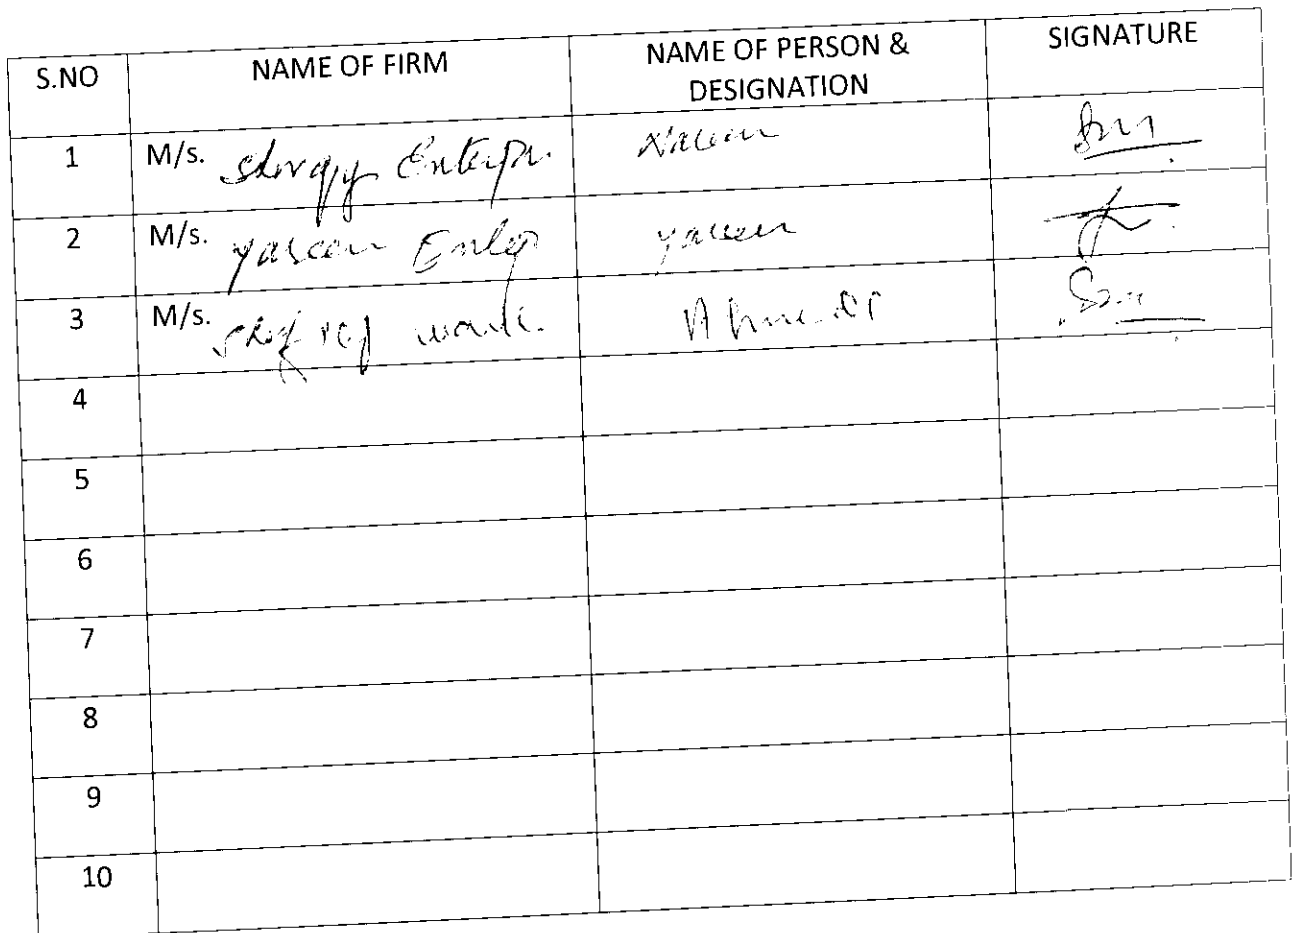 S.NO NAME OF FIRM NAME OF PERSON & DESIGNATION SIGNATURE
1 M/s. Enterpr. Naseem
2 M/s. Yaseen Enterp Yaseen
3 M/s. work. Ahmed
4
5
6
7
8
9
10